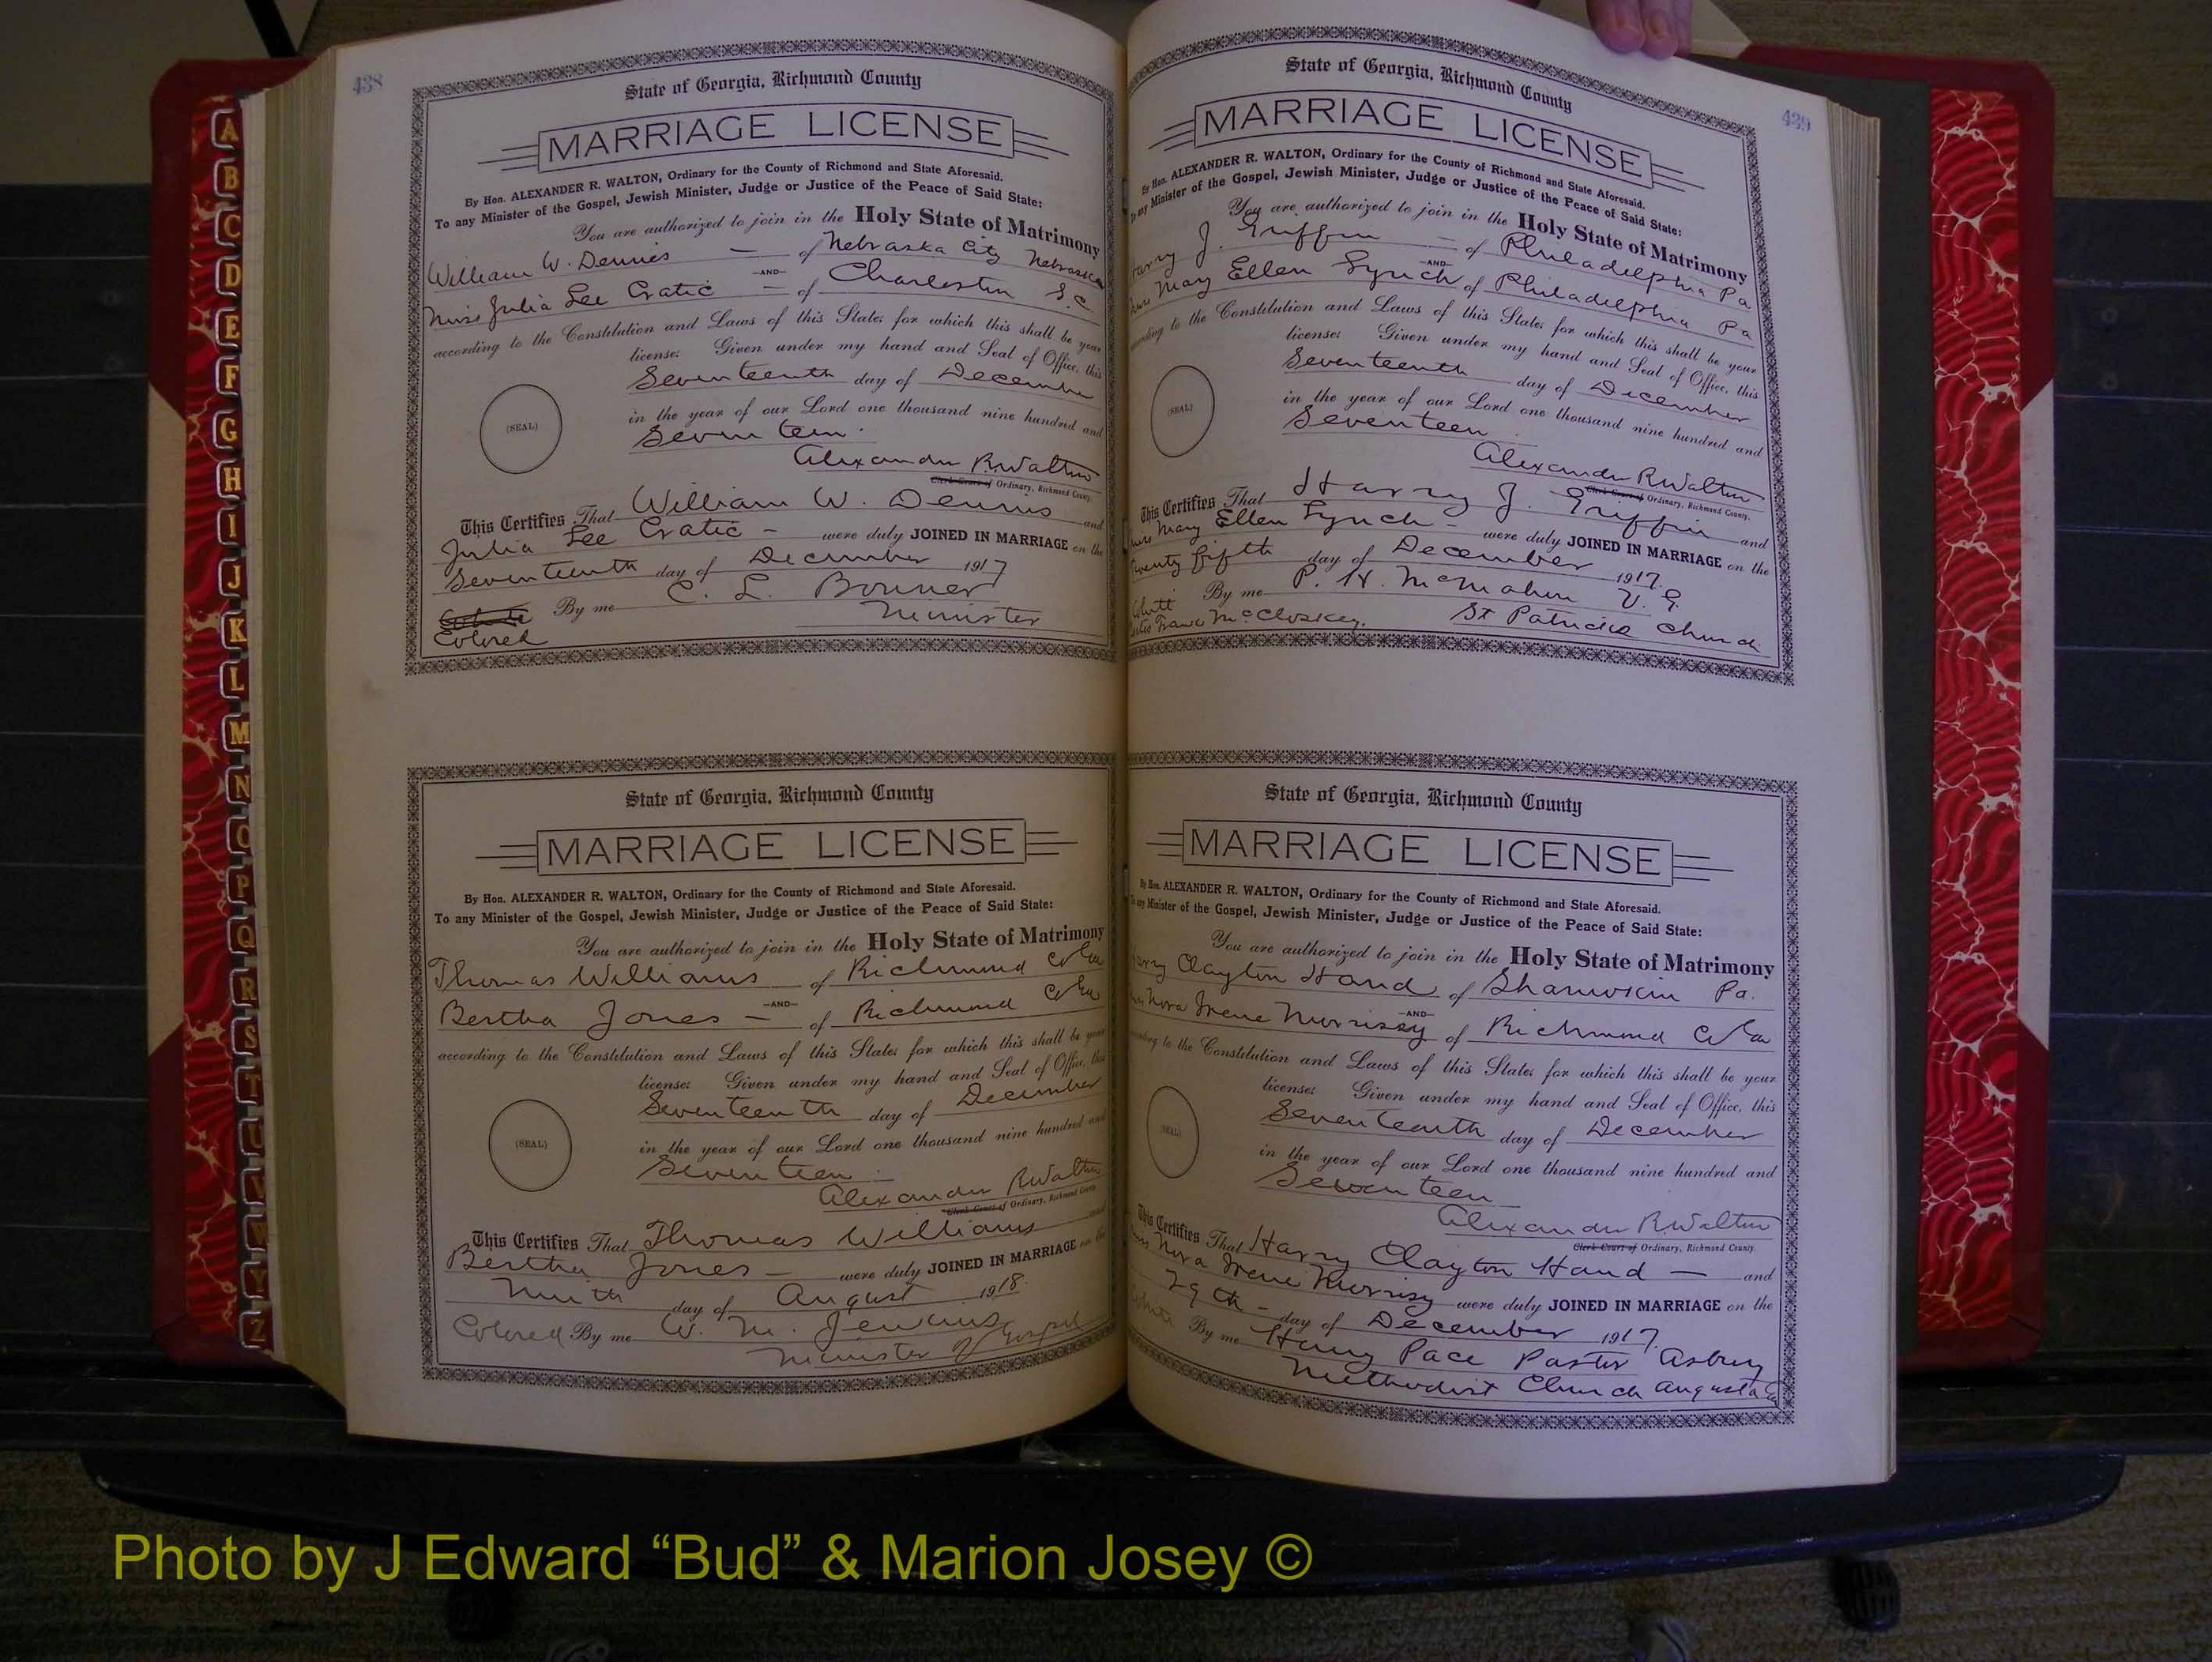 438
State of Georgia, Richmond County
MARRIAGE LICENSE
By Hon. ALEXANDER R. WALTON, Ordinary for the County of Richmond and State Aforesaid.
To any Minister of the Gospel, Jewish Minister, Judge or Justice of the Peace of Said State:
You are authorized to join in the Holy State of Matrimony
William W. Dennis — of Nebraska City Nebraska
—AND—
Miss Julia Lee Cratic — of Charleston S.C.
according to the Constitution and Laws of this State; for which this shall be your
license: Given under my hand and Seal of Office, this
Seventeenth day of December
(SEAL)
in the year of our Lord one thousand nine hundred and
Seventeen.
Alexander R. Walton
Clerk Court of Ordinary, Richmond County.
This Certifies That William W. Dennis and
Julia Lee Cratic — were duly JOINED IN MARRIAGE on the
Seventeenth day of December 1917
By me C. L. Bonner
Minister
Colored
State of Georgia, Richmond County
MARRIAGE LICENSE
By Hon. ALEXANDER R. WALTON, Ordinary for the County of Richmond and State Aforesaid.
To any Minister of the Gospel, Jewish Minister, Judge or Justice of the Peace of Said State:
You are authorized to join in the Holy State of Matrimony
Thomas Williams of Richmond Co Ga
—AND—
Bertha Jones — of Richmond Co Ga
according to the Constitution and Laws of this State; for which this shall be your
license: Given under my hand and Seal of Office, this
Seventeenth day of December
(SEAL)
in the year of our Lord one thousand nine hundred and
Seventeen
Alexander R Walton
Clerk Court of Ordinary, Richmond County
This Certifies That Thomas Williams and
Bertha Jones — were duly JOINED IN MARRIAGE on the
Ninth day of August 1918.
Colored By me W. M. Jenkins
Minister of Gospel
439
State of Georgia, Richmond County
MARRIAGE LICENSE
By Hon. ALEXANDER R. WALTON, Ordinary for the County of Richmond and State Aforesaid.
To any Minister of the Gospel, Jewish Minister, Judge or Justice of the Peace of Said State:
You are authorized to join in the Holy State of Matrimony
Harry J. Griffin — of Philadelphia Pa
—AND—
Miss Mary Ellen Lynch of Philadelphia Pa
according to the Constitution and Laws of this State; for which this shall be your
license: Given under my hand and Seal of Office, this
Seventeenth day of December
(SEAL)
in the year of our Lord one thousand nine hundred and
Seventeen.
Alexander R Walton
Clerk Court of Ordinary, Richmond County.
This Certifies That Harry J. Griffin and
Miss Mary Ellen Lynch — were duly JOINED IN MARRIAGE on the
Twenty fifth day of December 1917.
White By me P. H. McMahon V. G.
McCloskey. St Patricks Church
State of Georgia, Richmond County
MARRIAGE LICENSE
By Hon. ALEXANDER R. WALTON, Ordinary for the County of Richmond and State Aforesaid.
To any Minister of the Gospel, Jewish Minister, Judge or Justice of the Peace of Said State:
You are authorized to join in the Holy State of Matrimony
Harry Clayton Hand of Shamokin Pa.
—AND—
Miss Nora Irene Morrissy of Richmond Co Ga
according to the Constitution and Laws of this State; for which this shall be your
license: Given under my hand and Seal of Office, this
Seventeenth day of December
(SEAL)
in the year of our Lord one thousand nine hundred and
Seventeen
Alexander R. Walton
Clerk Court of Ordinary, Richmond County
This Certifies That Harry Clayton Hand — and
Miss Nora Irene Morrisy were duly JOINED IN MARRIAGE on the
29th — day of December 1917.
White By me Harry Pace Pastor Asbury
Methodist Church Augusta Ga
A
B
C
D
E
F
G
H
I
J
K
L
M
N
O
P
Q
R
S
T
U
V
W
Y
Z
Photo by J Edward “Bud” & Marion Josey ©